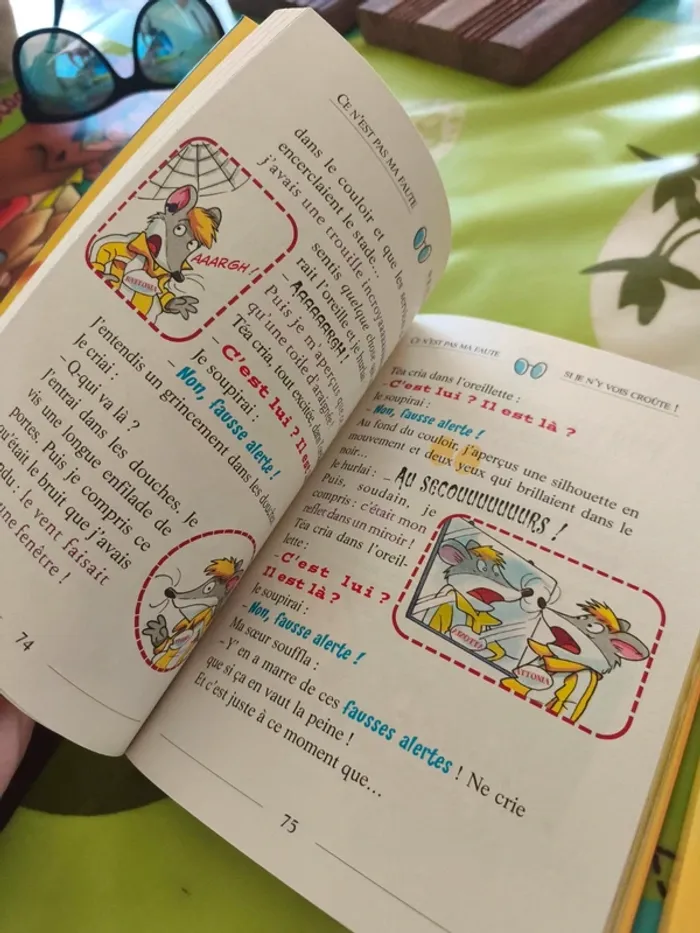 CE N'EST PAS MA FAUTE
dans le couloir et que les
encerclaient le stade...
j'avais une trouille
sentis quelque chose
rait l'oreille et je
– AAAAAARGH !
Puis je m'aperçus que
qu'une toile d'araignée !
Téa cria, tout excitée dans
– C'est lui ? Il est
Je soupirai :
– Non, fausse alerte !
AAARGH !
RATTONIA
J'entendis un grincement dans les douches.
Je criai :
– Q-qui va là ?
J'entrai dans les douches. Je
vis une longue enfilade de
portes. Puis je compris ce
qu'était le bruit que j'avais
: le vent faisait
une fenêtre !
74
CE N'EST PAS MA FAUTE
SI JE N'Y VOIS CROÛTE !
Téa cria dans l'oreillette :
– C'est lui ? Il est là ?
Je soupirai :
– Non, fausse alerte !
Au fond du couloir, j'aperçus une silhouette en
mouvement et deux yeux qui brillaient dans le
noir...
Je hurlai : – AU SECOUUUUUUUURS !
Puis, soudain, je
compris : c'était mon
reflet dans un miroir !
Téa cria dans l'oreil-
lette :
– C'est lui ?
Il est là ?
Je soupirai :
– Non, fausse alerte !
Ma sœur souffla :
– Y'en a marre de ces fausses alertes ! Ne crie
que si ça en vaut la peine !
Et c'est juste à ce moment que...
75